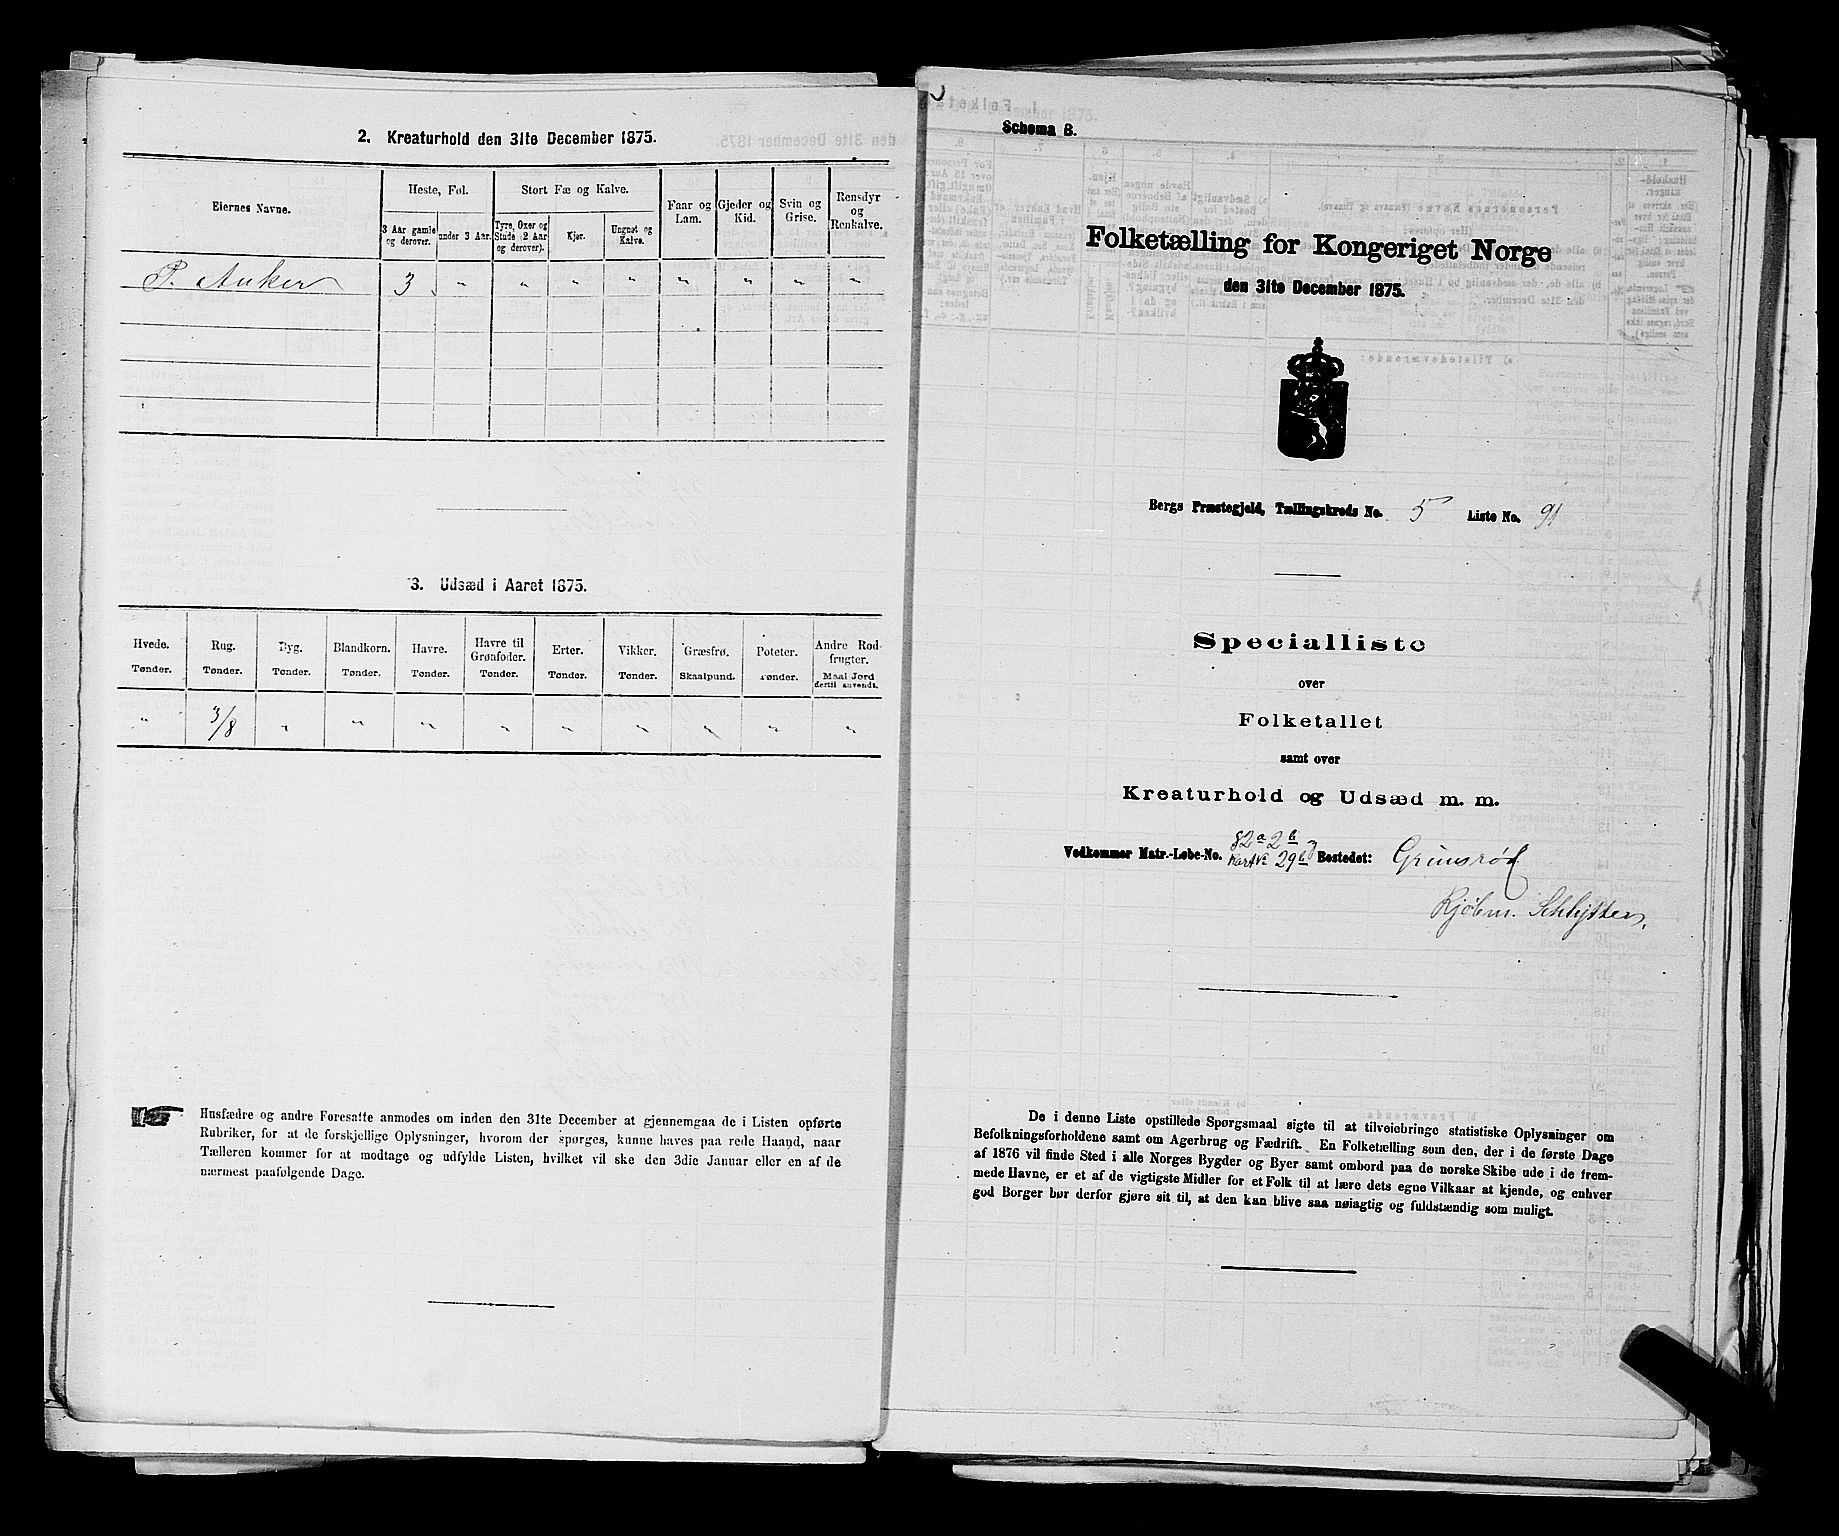 2. Kreaturhold den 31te December 1875.
Eiernes Navne.
Heste, Føl.
Stort Fæ og Kalve.
Faar og Lam.
Gjeder og Kid.
Svin og Grise.
Rensdyr og Renkalve.
3 Aar gamle og derover.
under 3 Aar.
Tyre, Oxer og Stude (2 Aar og derover).
Kjør.
Ungnøt og Kalve.
P. Anker 3 " " " " " " " "
3. Udsæd i Aaret 1875.
Hvede. Rug. Byg. Blandkorn. Havre. Havre til Grønfoder. Erter. Vikker. Græsfrø. Poteter. Andre Rodfrugter.
Tønder. Tønder. Tønder. Tønder. Tønder. Tønder. Tønder. Tønder. Skaalpund. Tønder. Maal Jord dertil anvendt.
" 3/8 " " " " " " " " "
Husfædre og andre Foresatte anmodes om inden den 31te December at gjennemgaa de i Listen opførte
Rubriker, for at de forskjellige Oplysninger, hvorom der spørges, kunne haves paa rede Haand, naar
Tælleren kommer for at modtage og udfylde Listen, hvilket vil ske den 3die Januar eller en af de
nærmest paafølgende Dage.
Schema B.
Folketælling for Kongeriget Norge
den 31te December 1875.
Bergs Præstegjeld, Tællingskreds No. 5 Liste No. 91
Specialliste
over
Folketallet
samt over
Kreaturhold og Udsæd m. m.
82a 2b
Vedkommer Matr.-Løbe-No. 29b Bostedet: Grimsrød
Kjøbm. Schlytter.
De i denne Liste opstillede Spørgsmaal sigte til at tilveiebringe statistiske Oplysninger om
Befolkningsforholdene samt om Agerbrug og Fædrift. En Folketælling som den, der i de første Dage
af 1876 vil finde Sted i alle Norges Bygder og Byer samt ombord paa de norske Skibe ude i de frem-
mede Havne, er et af de vigtigste Midler for et Folk til at lære dets egne Vilkaar at kjende, og enhver
god Borger bør derfor gjøre sit til, at den kan blive saa nøiagtig og fuldstændig som muligt.